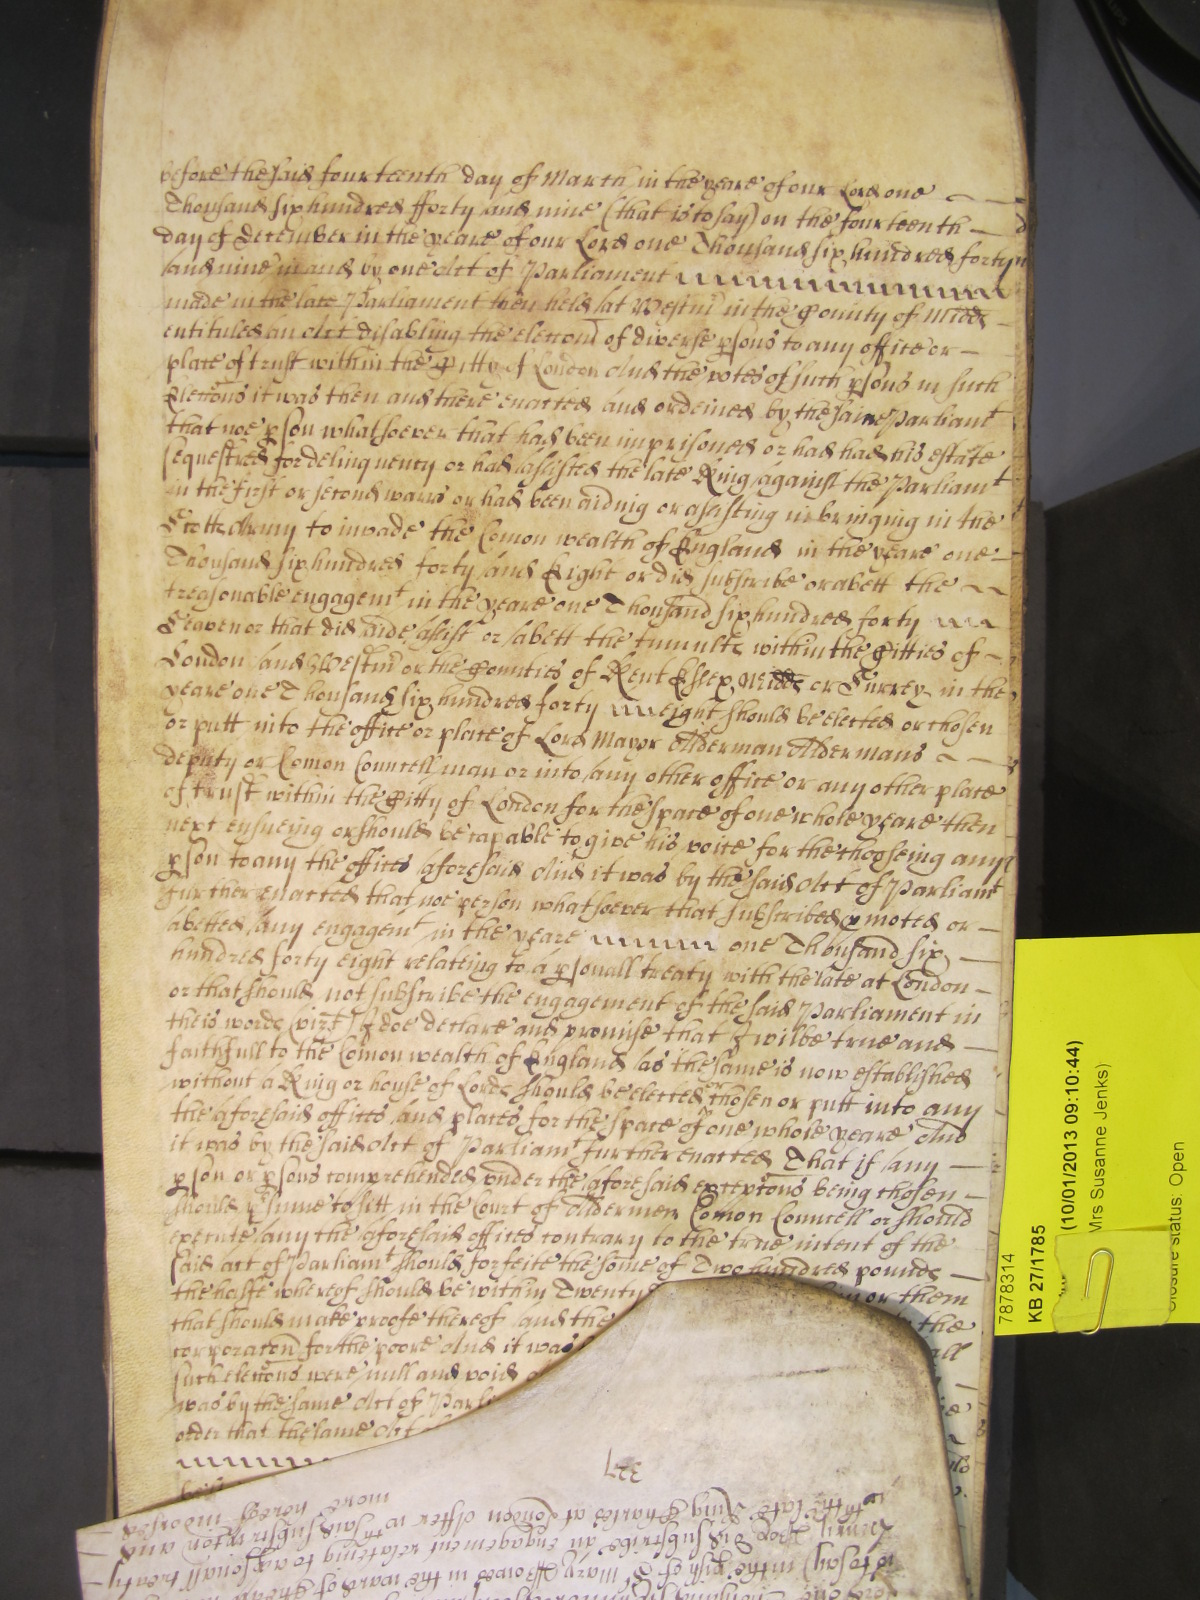 before the said fourteenth day of March in the yeare of our Lord one
Thousand six hundred fforty and nine (that is to say) on the fourteenth
day of December in the yeare of our Lord one Thousand six hundred forty
and nine in and by one Act of Parliament
made in the late Parliament then held at Westm in the County of Midd
entituled an Act disabling the eleccon of diverse psons to any office or
place of trust within the Citty of London And the votes of such psons in such
Eleccons it was then and there enacted and ordeined by the same Parliamt
that noe pson whatsoever that had been imprisoned or had had his estate
sequestred for delinquency or had assisted the late King against the Parliamt
in the first or second warrs or had been aiding or assisting in bringing in the
Scotts Army to invade the Comon wealth of England in the yeare one
Thousand six hundred forty and Eight or did subscribe or abett the
treasonable engagemt in the yeare one Thousand six hundred forty
Seaven or that did aide assist or abett the tumults within the Citties of
London and Westm or the Counties of Kent Essex Midd or Surrey in the
yeare one Thousand six hundred forty eight should be elected or chosen
or putt into the office or place of Lord Mayor Alderman Aldermans
deputy or Comon Councell man or into any other office or any other place
of trust within the Citty of London for the space of one whole yeare then
next ensueing or should be capable to give his voice for the chooseing any
pson to any the offices aforesaid And it was by the said Act of Parliamt
further enacted that noe person whatsoever that subscribed pmoted or
abetted any engagemt in the yeare one Thousand six
hundred forty eight relateing to a psonall treaty with the late at London
or that should not subscribe the engagement of the said Parliament in
theis words (vizt) I doe declare and promise that I wilbe true and
faithfull to the Comon wealth of England as the same is now established
without a King or house of Lords should be elected or chosen or putt into any
the aforesaid offices and places for the space of one whole yeare And
it was by the said Act of Parliamt further enacted That if any
pson or psons comprehended under the aforesaid exceptons being chosen
should psume to sitt in the Court of Aldermen Comon Councell or should
execute any the aforesaid offices contrary to the true intent of the
said act of Parliamt should forfeite the some of Two hundred pounds
the halfe whereof should be within Twenty or them
that should make proofe thereof and the the
corporacon for the poore And it was all
such eleccons were null and void
was by the same Act of Parli
order that the same Act
327
more hereof indorsed
of the late King Charles at London After wch said subscripcon and
did subscribe an engagement relating to a psonall treaty
to say) in the pish of St Mary in the ward of Cheap
7878314
KB 27/1785
(10/01/2013 09:10:44)
Mrs Susanne Jenks)
Closure status: Open